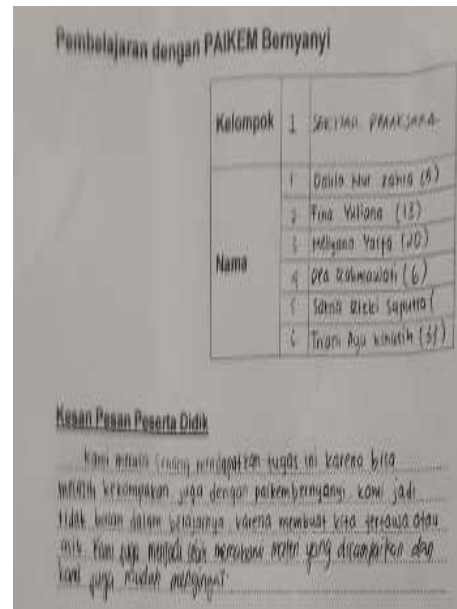 Pembelajaran dengan PAIKEM Bernyanyi
Kelompok 1 PRAAKSARA
Nama
1 Dalila Nur Zahra (5)
2 Fina Yuliana (13)
3 Yarfa (20)
4 Dea Rahmawati (6)
5 Rizki Saputra (
6 Triani Ayu (31)
Kesan Pesan Peserta Didik
Kami merasa senang mendapatkan tugas ini karena bisa
melatih kekompakan juga dengan paikem bernyanyi kami jadi
tidak bosan dalam belajarnya karena membuat kita tertawa atau
Kami juga menjadi memahami materi yang disampaikan dan
kami juga mudah mengingat.